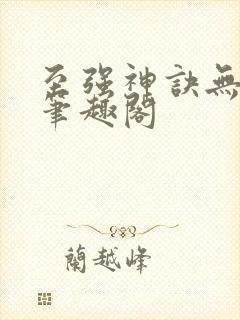 至强神訣無
筆趣閣
蘭越峰